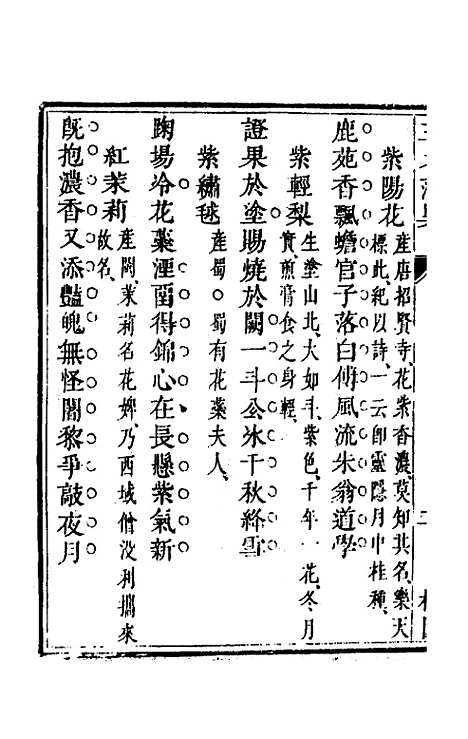 紫陽花 產唐招賢寺花紫香濃莫知其名樂天
標此紀以詩一云卽靈隱月中桂種
鹿苑香飄蟾宮子落白傅風流朱翁道學
紫輕梨 生塗山北大如斗紫色千年一花冬月
實煎膏食之身輕
證果於塗賜燒於闕一斗公氷千秋絳雪
紫繡毬 產蜀蜀有花蘂夫人
踘場冷花蘂湮面得錦心在長懸紫氣新
紅茉莉 產閩茉莉名花婢乃西域僧没利攜來
故名
旣抱濃香又添豔魄無怪闍黎爭敲夜月